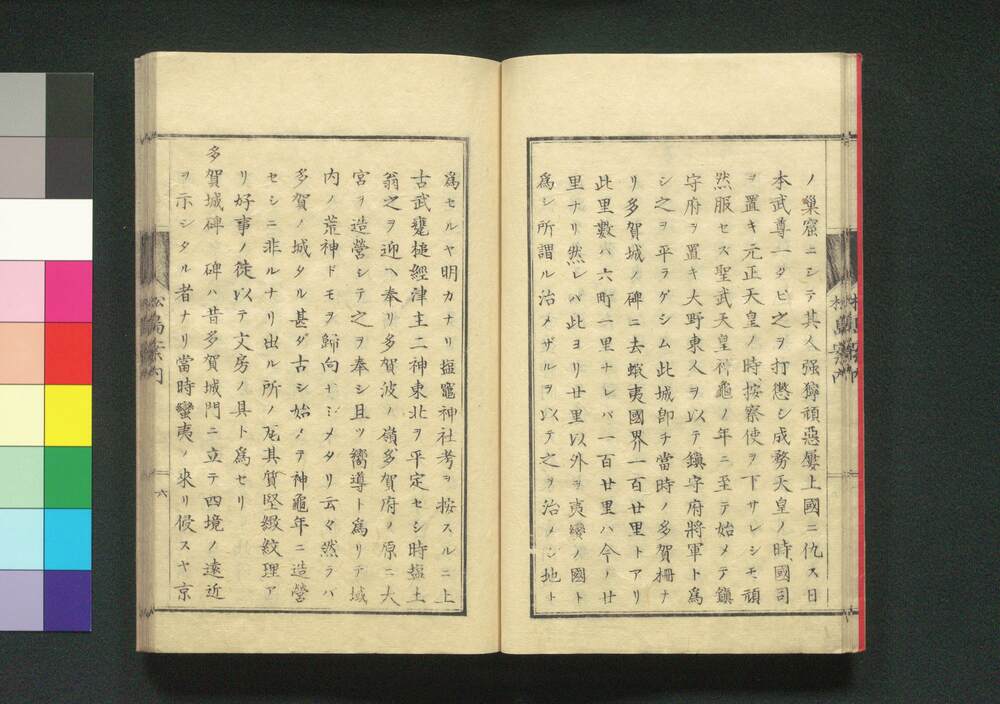 ノ巣窟ニシテ其人强獰頑惡屢上國ニ仇ス日
本武尊一タビ之ヲ打懲シ成務天皇ノ時國司
ヲ置キ元正天皇ノ時按察使ヲ下サレシモ頑
然服セス聖武天皇神龜ノ年ニ至テ始メテ鎭
守府ヲ置キ大野東人ヲ以テ鎭守府將軍ト爲
シ之ヲ平ラゲシム此城卽チ當時ノ多賀柵ナ
リ多賀城ノ碑ニ去蝦夷國界一百廿里トアリ
此里數ハ六町一里ナレバ一百廿里ハ今ノ廿
里ナリ然レバ此ヨリ廿里以外ヲ夷蠻ノ國ト
爲シ所謂ル治メザルヲ以テ之ヲ治メシ地ト
松島案内
爲セルヤ明カナリ塩竈神社考ヲ按スルニ上
古武甕槌經津主二神東北ヲ平定セシ時塩土
翁之ヲ迎ヘ奉リ多賀波ノ嶺多賀府ノ原ニ大
宮ヲ造營シテ之ヲ奉シ且ツ嚮導ト爲リテ域
内ノ荒神ドモヲ歸向セシメタリ云々然ラハ
多賀ノ城タル甚ダ古シ始メテ神龜年ニ造營
セシニ非ルナリ出ル所ノ瓦其質堅緻紋理ア
リ好事ノ徒以テ文房ノ具ト爲セリ
多賀城碑 碑ハ昔多賀城門ニ立テ四境ノ遠近
ヲ示シタル者ナリ當時蠻夷ノ來リ侵スヤ京
松島案内
六